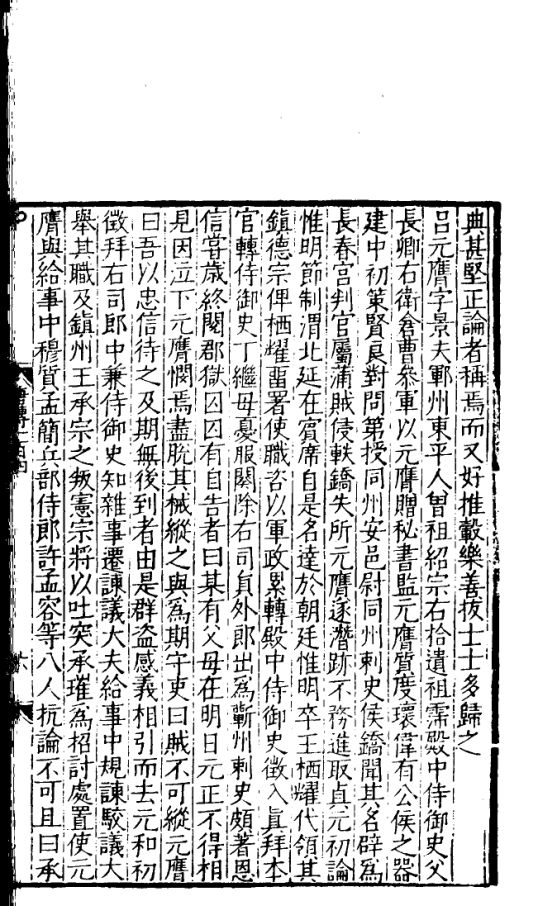 典甚堅正論者稱焉而又好推轂樂善拔士士多歸之
吕元膺字景夫鄆州東平人曽祖紹宗右拾遺祖霈殿中侍御史父
長卿右衞倉曹叅軍以元膺贈秘書監元膺質度瓌偉有公侯之器
建中初策賢良對問第授同州安邑尉同州刺史侯鐈聞其名辟爲
長春宫判官屬蒲賊侵軼鐈失所元膺遂潛跡不務進取貞元初論
惟明節制渭北延在賓席自是名達於朝廷惟明卒王栖耀代領其
鎮德宗俾栖耀留署使職咨以軍政累轉殿中侍御史徵入眞拜本
官轉侍御史丁繼母憂服闋除右司貟外郎出爲蘄州刺史頗著恩
信甞歲終閱郡獄囚囚有自告者曰某有父母在明日元正不得相
見因泣下元膺憫焉盡脫其械縱之與爲期守吏曰賊不可縱元膺
曰吾以忠信待之及期無後到者由是群盗感義相引而去元和初
徵拜右司郎中兼侍御史知雜事遷諫議大夫給事中規諫駮議大
舉其職及鎮州王承宗之叛憲宗將以吐突承璀爲招討處置使元
膺與給事中穆質孟簡兵部侍郎許孟容等八人抗論不可且曰承
六